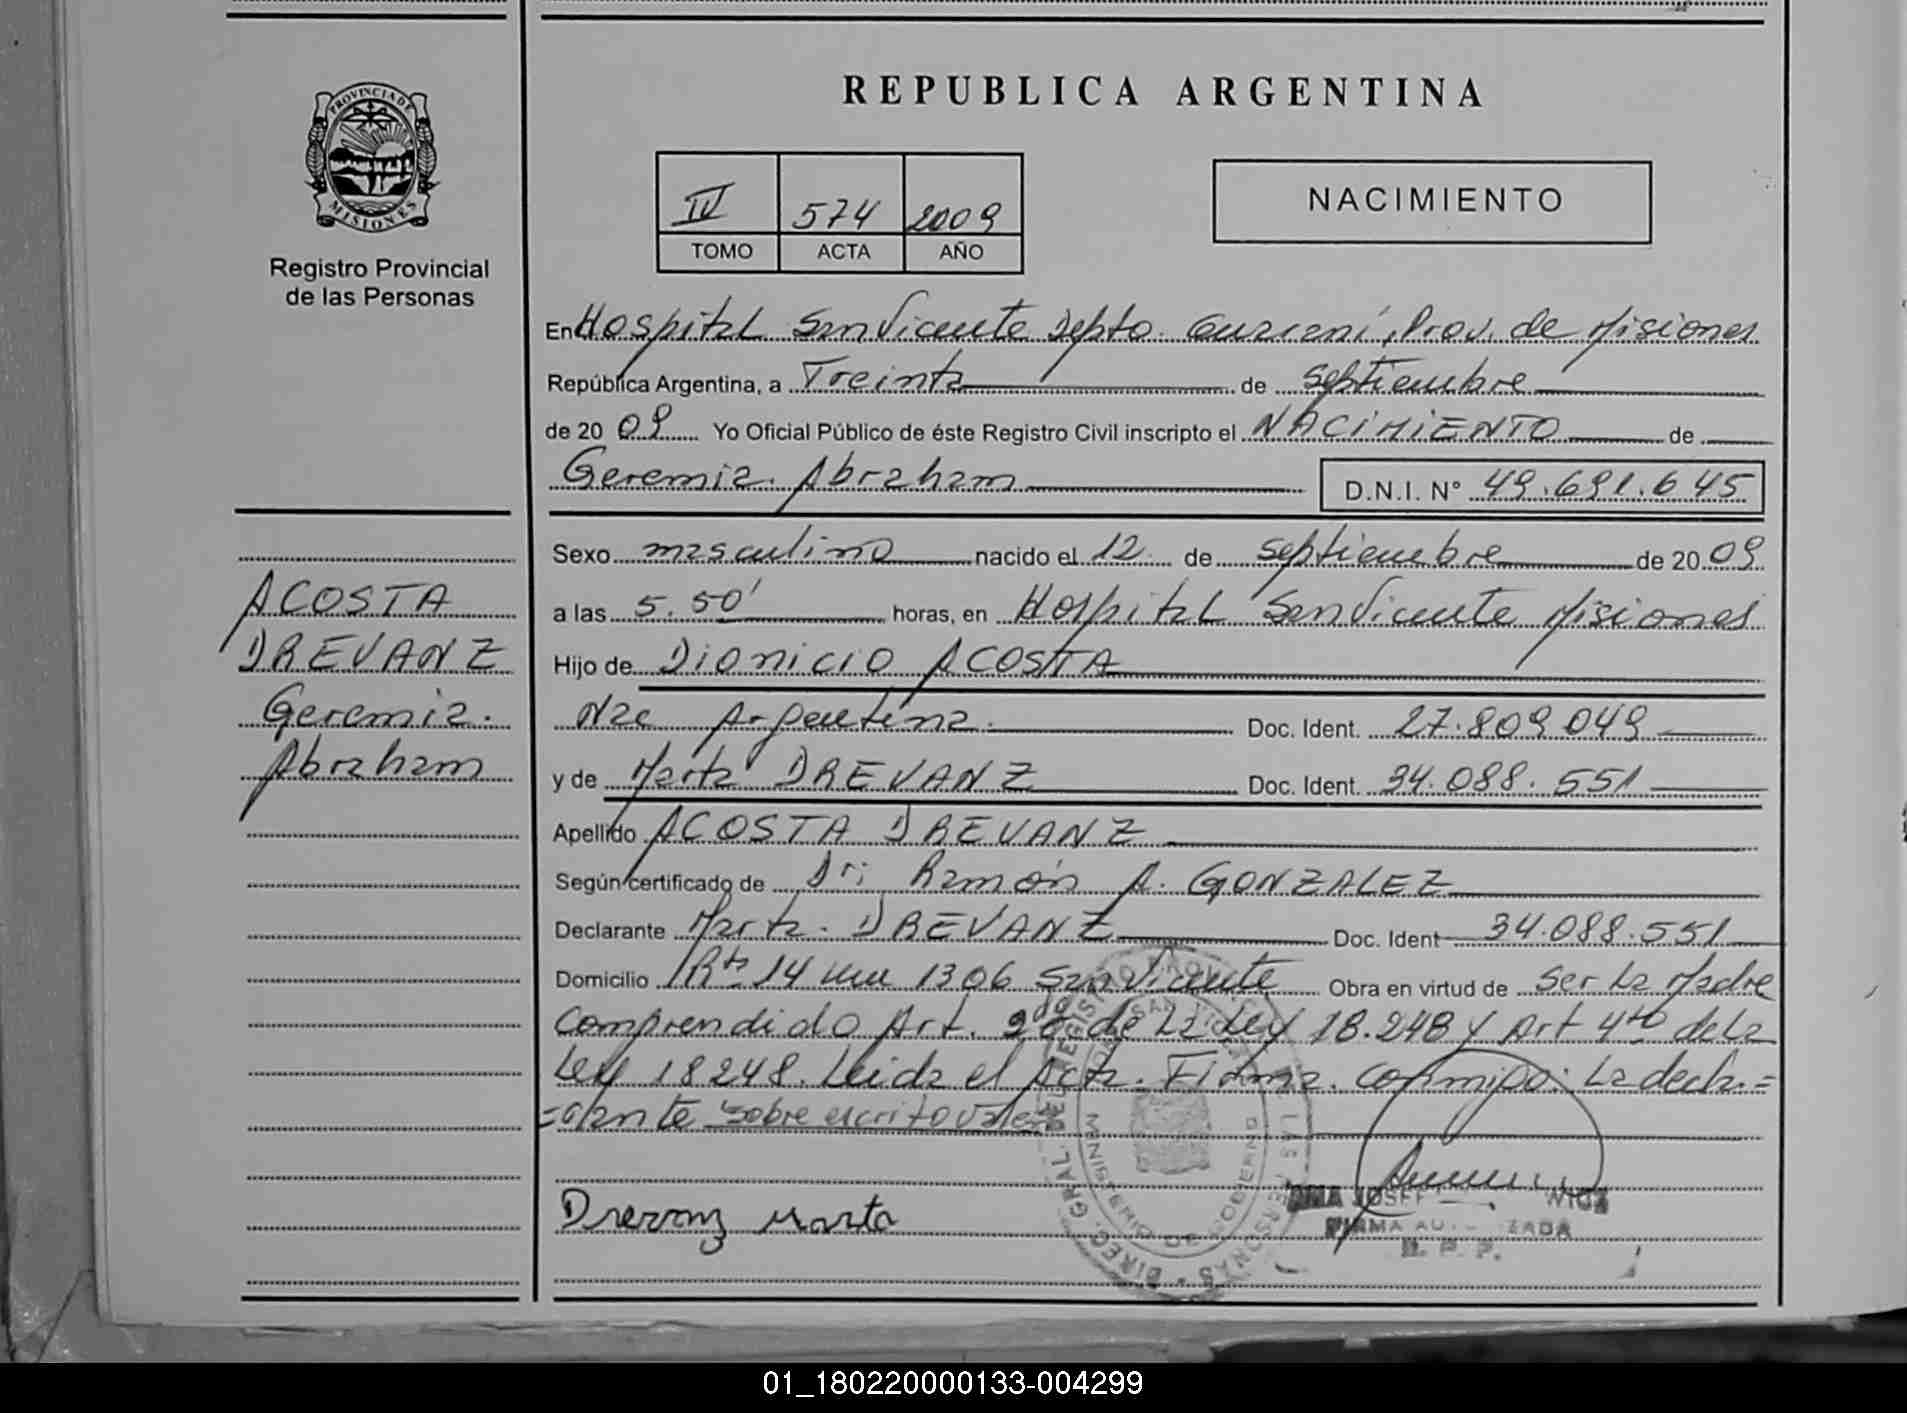 REPUBLICA ARGENTINA
PROVINCIA DE
MISIONES
Registro Provincial
de las Personas
IV 574 2009
TOMO ACTA AÑO
NACIMIENTO
En Hospital San Vicente Depto. Guarani, Prov. de Misiones
República Argentina, a Treinta de septiembre
de 20 09 Yo Oficial Público de éste Registro Civil inscripto el NACIMIENTO de
Geremia. Abraham D.N.I. N° 49.691.645
Sexo masculino nacido el 12 de septiembre de 20 09
a las 5.50' horas, en Hospital San Vicente Misiones
Hijo de Dionicio ACOSTA
Nac Argentina. Doc. Ident. 27.809.049
y de Marta DREVANZ Doc. Ident. 34.088.551
Apellido ACOSTA DREVANZ
Según certificado de Dr; Ramón A. GONZALEZ
Declarante Marta. DREVANZ Doc. Ident 34.088.551
Domicilio Rta 14 km 1306 San Vicente Obra en virtud de ser la Madre
Comprendido Art. 2do de la Ley 18.248 y Art 4to de la
Ley 18248. Leida el Acta. Firma. conmigo. La decla.=
=rante sobre escrito vale
ACOSTA
DREVANZ
Geremia.
Abraham
Drevanz Marta
DIREC. GRAL. DEL REGISTRO DE LAS PERSONAS
MINISTERIO DE GOBIERNO
SAN
FIRMA AUTORIZADA
R. P. P.
01_180220000133-004299